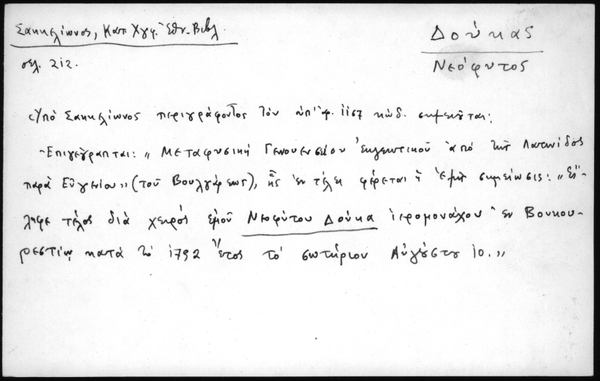 Σακκελίωνος, Κατ. Χγφ. Ἐθν. Βιβλ.
σελ. 212.
Δούκας
Νεόφυτος
Ὑπὸ Σακκελίωνος περιγράφοντος τὸν ὑπ' ἀ. 1157 κώδ. σημειοῦται:
"Ἐπιγέγραπται: "Μεταφυσικὴ Γενουενσίου ἐκ τῆς Λατινίδος
παρὰ Εὐγενίου" (τοῦ Βουλγάρεως), ἧς ἐν τέλει φέρεται ἡ ἑξῆς σημείωσις: "Εἴ-
ληφε τέλος διὰ χειρὸς ἐμοῦ Νεοφύτου Δούκα ἱερομονάχου ἐν Βουκου-
ρεστίῳ κατὰ τὸ 1792 ἔτος τὸ σωτήριον Αὐγούστου 10."